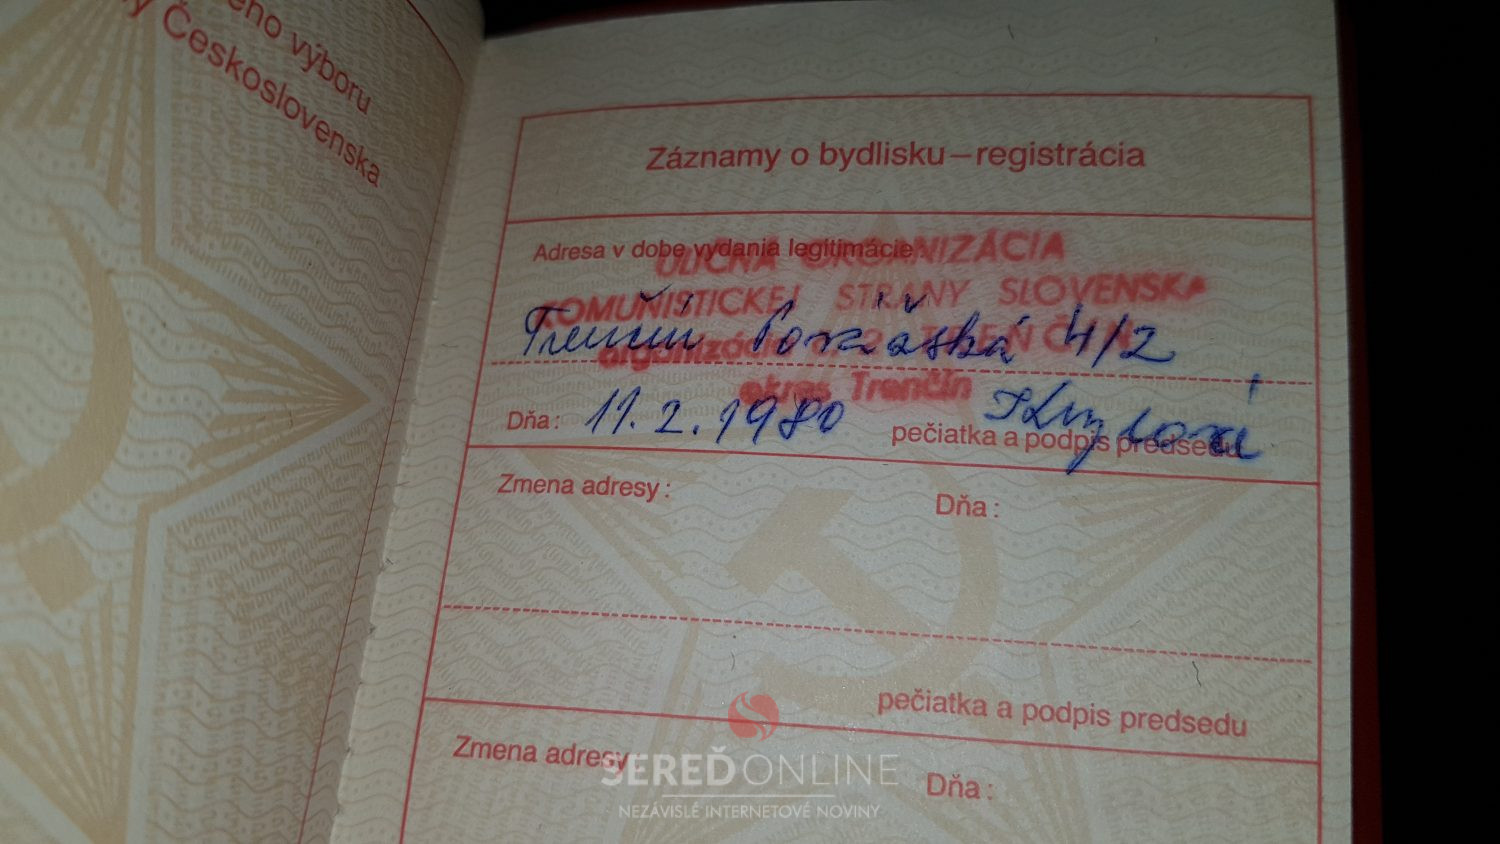 ho výboru
Československa
Záznamy o bydlisku – registrácia
Adresa v dobe vydania legitimácie:
ULIČNÁ ORGANIZÁCIA
KOMUNISTICKEJ STRANY SLOVENSKA
Trenčín 4/2
TRENČÍN
okres Trenčín
Dňa: 11.2.1980
pečiatka a podpis predsedu
Zmena adresy:
Dňa:
pečiatka a podpis predsedu
Zmena adresy
Dňa:
SEREĎONLINE
NEZÁVISLÉ INTERNETOVÉ NOVINY